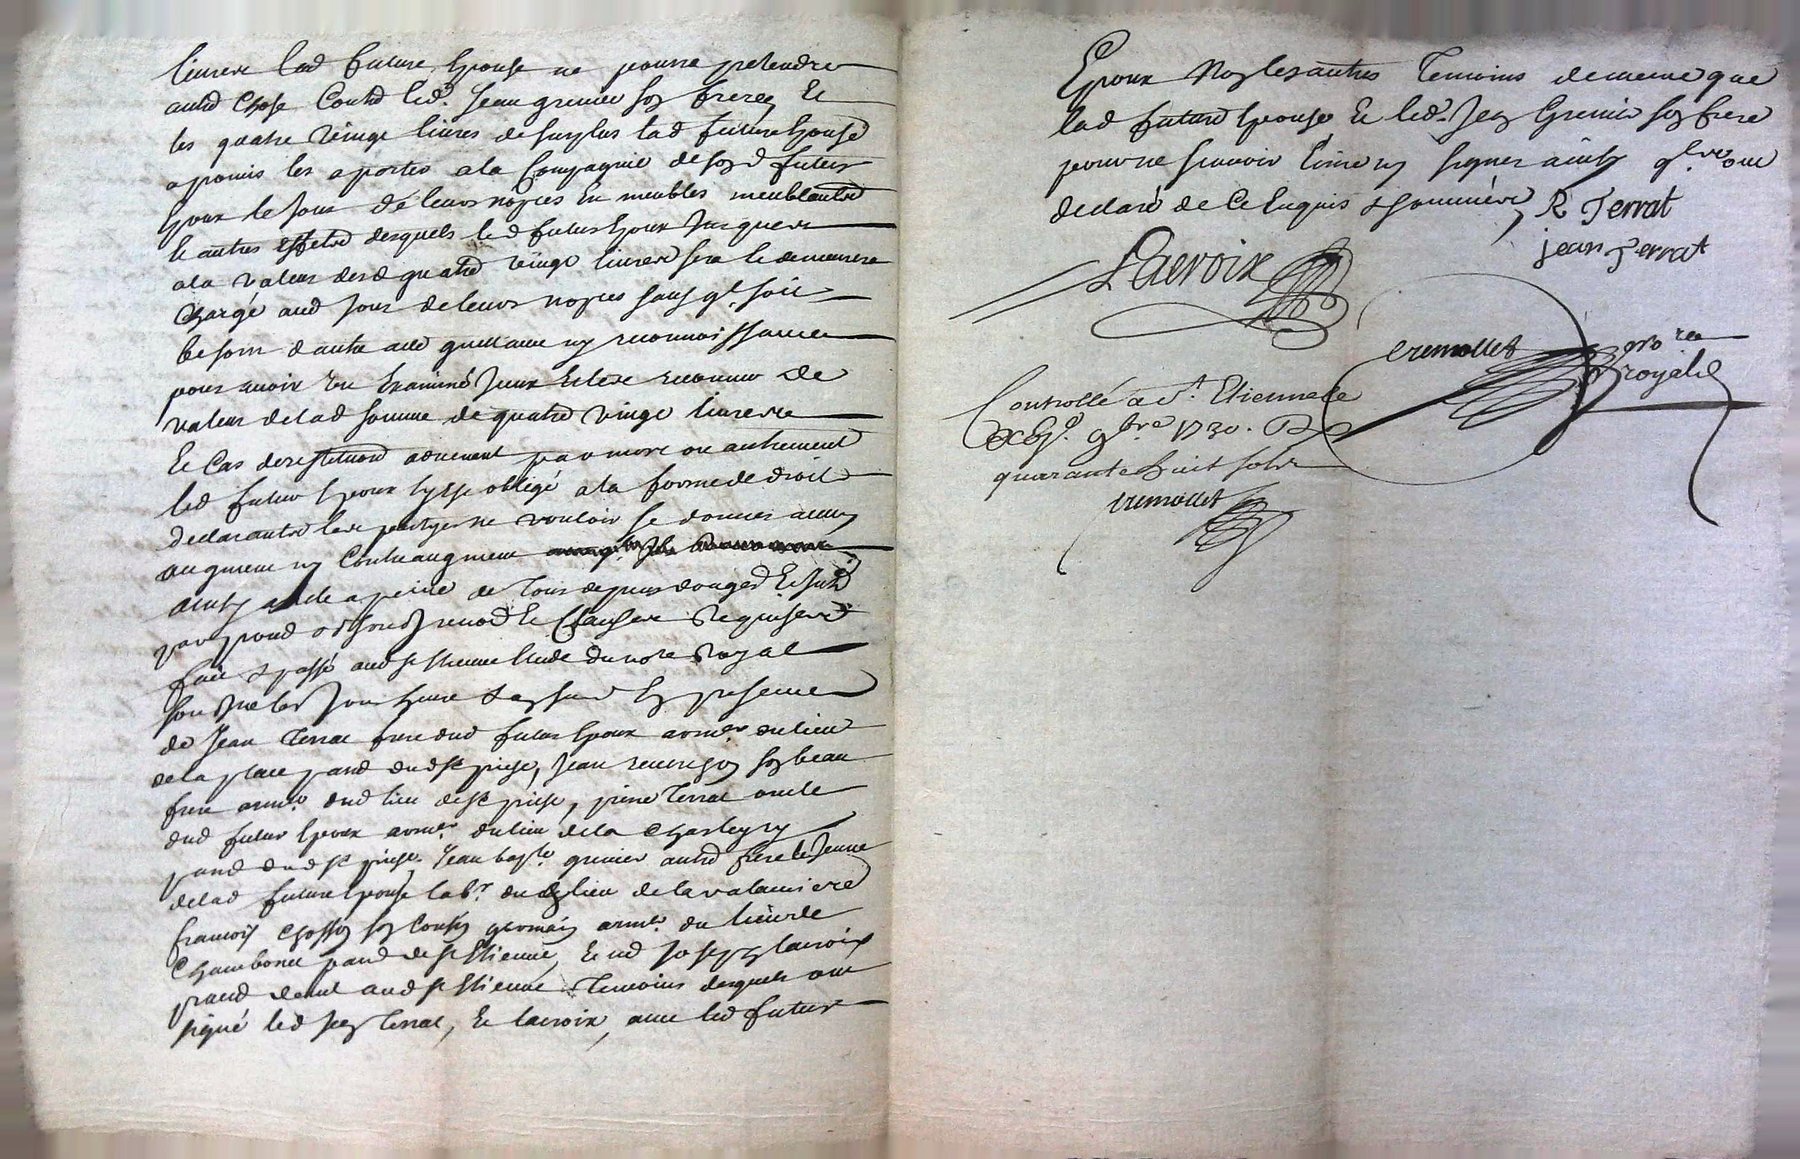 livres lad future Epouse ne pourra pretendre
autre chose Contre led. Jean grenier son frere, Et
les quatre vingt livres de surplus lad future Epouse
a promis les aporter a la Compagnie de sond futur
Epoux le Jour de leurs nopces En meubles meublants
Et autres effets desquels led futur Epoux Jusques
a la valeur desd quatre vingt livres sera Et demeurera
Chargé aud Jour de leurs nopces sans ql. soit
besoin d'autre acte quittance ny reconnoissance
pour avoir veu Examiné Iceux Et les reconnus de
valeur de lad somme de quatre vingt livres
Le Cas de restitution advenant par mort ou autrement
led futur Epoux sera obligé a la forme de droit
declarants les partyes ne vouloir se donner aucun
augment ny Contreaugment
ainsy a
par Et Clauses Requises
fait & passé aud st Etienne Etude du nore Royal
sousné les Jour heure & an En presence
de Jean Terrat frere dud futur Epoux armer. du lieu
de la place parr dud st priest, Jean son beau
frere armer. dud lieu de st priest, pierre Terrat oncle
dud futur Epoux armer. du lieu de la
parr dud st priest, Jean bapte. grenier autre frere le Jeune
de lad future Epouse labr. du lieu de la
francois son Cousin germain armer. du lieu de
parr de st Etienne, Et Joseph lacroix
aud st Etienne Temoins desquels ont
signé led Jean Terrat, Et lacroix, avec led futur
Epoux Non les autres Temoins de meme que
lad future Epouse, Et led. Jean Grenier son frere
pour ne scavoir Ecrire ny signer ainsy ql. ont
declaré de Ce Enquis & sommés
R Terrat
jean Terrat
Lacroix
cremollet nore
royal
Controllé a St. Etienne le
9bre 1730. R
quarante huit sols
cremollet